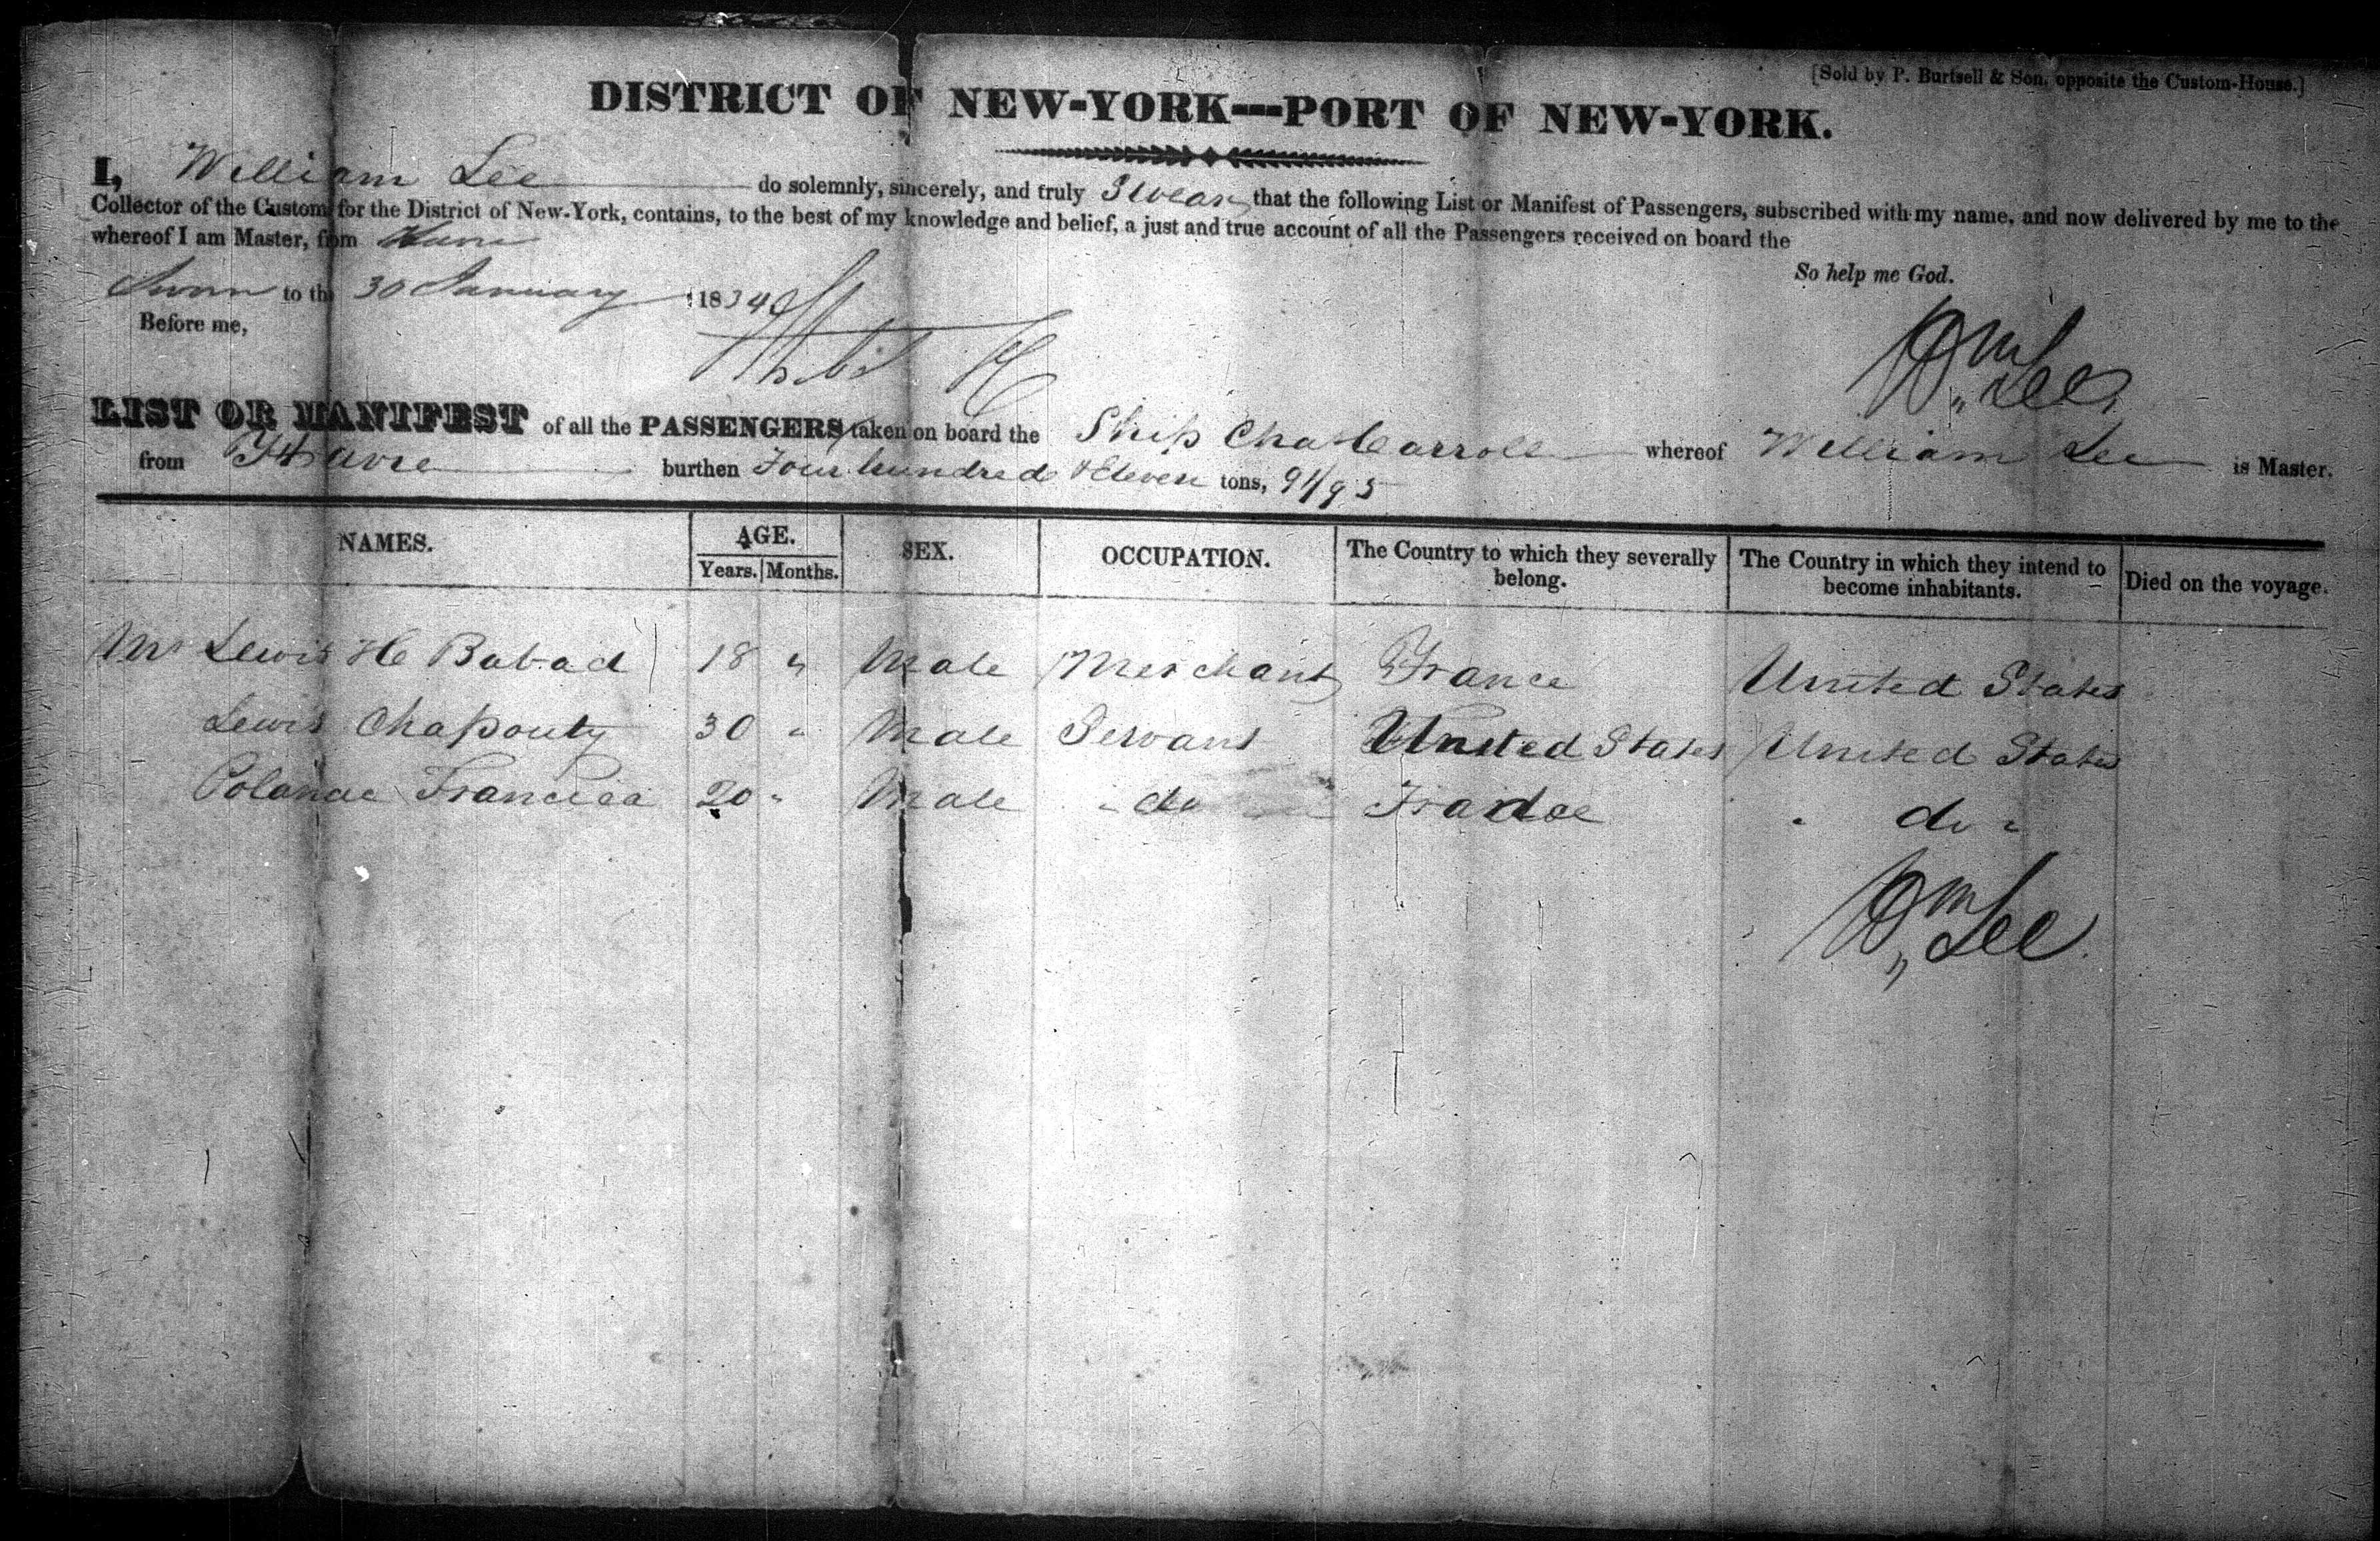 [Sold by P. Burtsell & Son, opposite the Custom-House.]
DISTRICT OF NEW-YORK---PORT OF NEW-YORK.
I, William Lee do solemnly, sincerely, and truly Swear that the following List or Manifest of Passengers, subscribed with my name, and now delivered by me to the
Collector of the Customs for the District of New-York, contains, to the best of my knowledge and belief, a just and true account of all the Passengers received on board the
whereof I am Master, from Havre
So help me God.
Sworn to the 30 January 1834
Before me,
Wm Lee
LIST OR MANIFEST of all the PASSENGERS taken on board the Ship Cha Carroll whereof William Lee is Master,
from Havre burthen Four hundred & Eleven tons, 94/95
NAMES. AGE. SEX. OCCUPATION. The Country to which they severally belong. The Country in which they intend to become inhabitants. Died on the voyage.
Years. Months.
Mr Lewis H Babad 18 " Male Merchant France United States
Lewis Chapouty 30 " Male Servant United States United States
Francica 20 " Male " do France " do "
Wm Lee